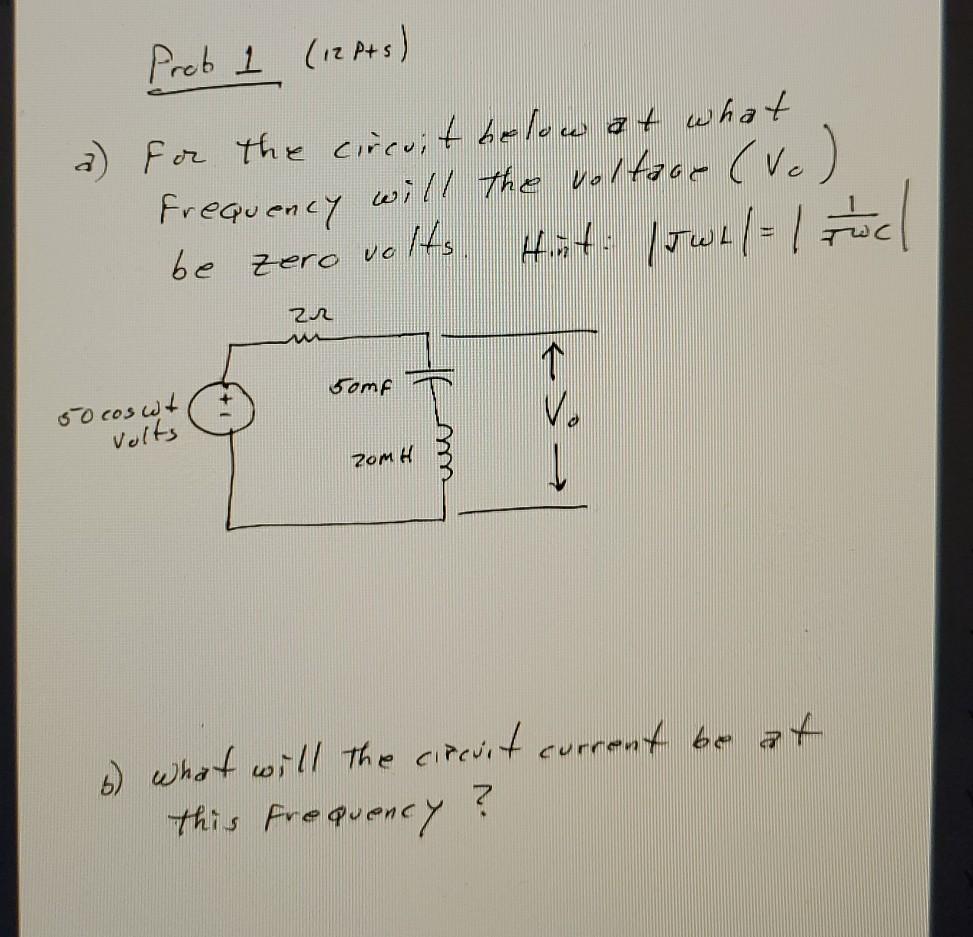 Prob 1 (12 Pts)
a) For the circuit below at what
Frequency will the voltage (Vo)
be zero volts. Hint: |JWL| = | 1/JWC |
2Ω
50 cos wt
Volts
+
-
50mF
20mH
Vo
b) What will the circuit current be at
this Frequency ?